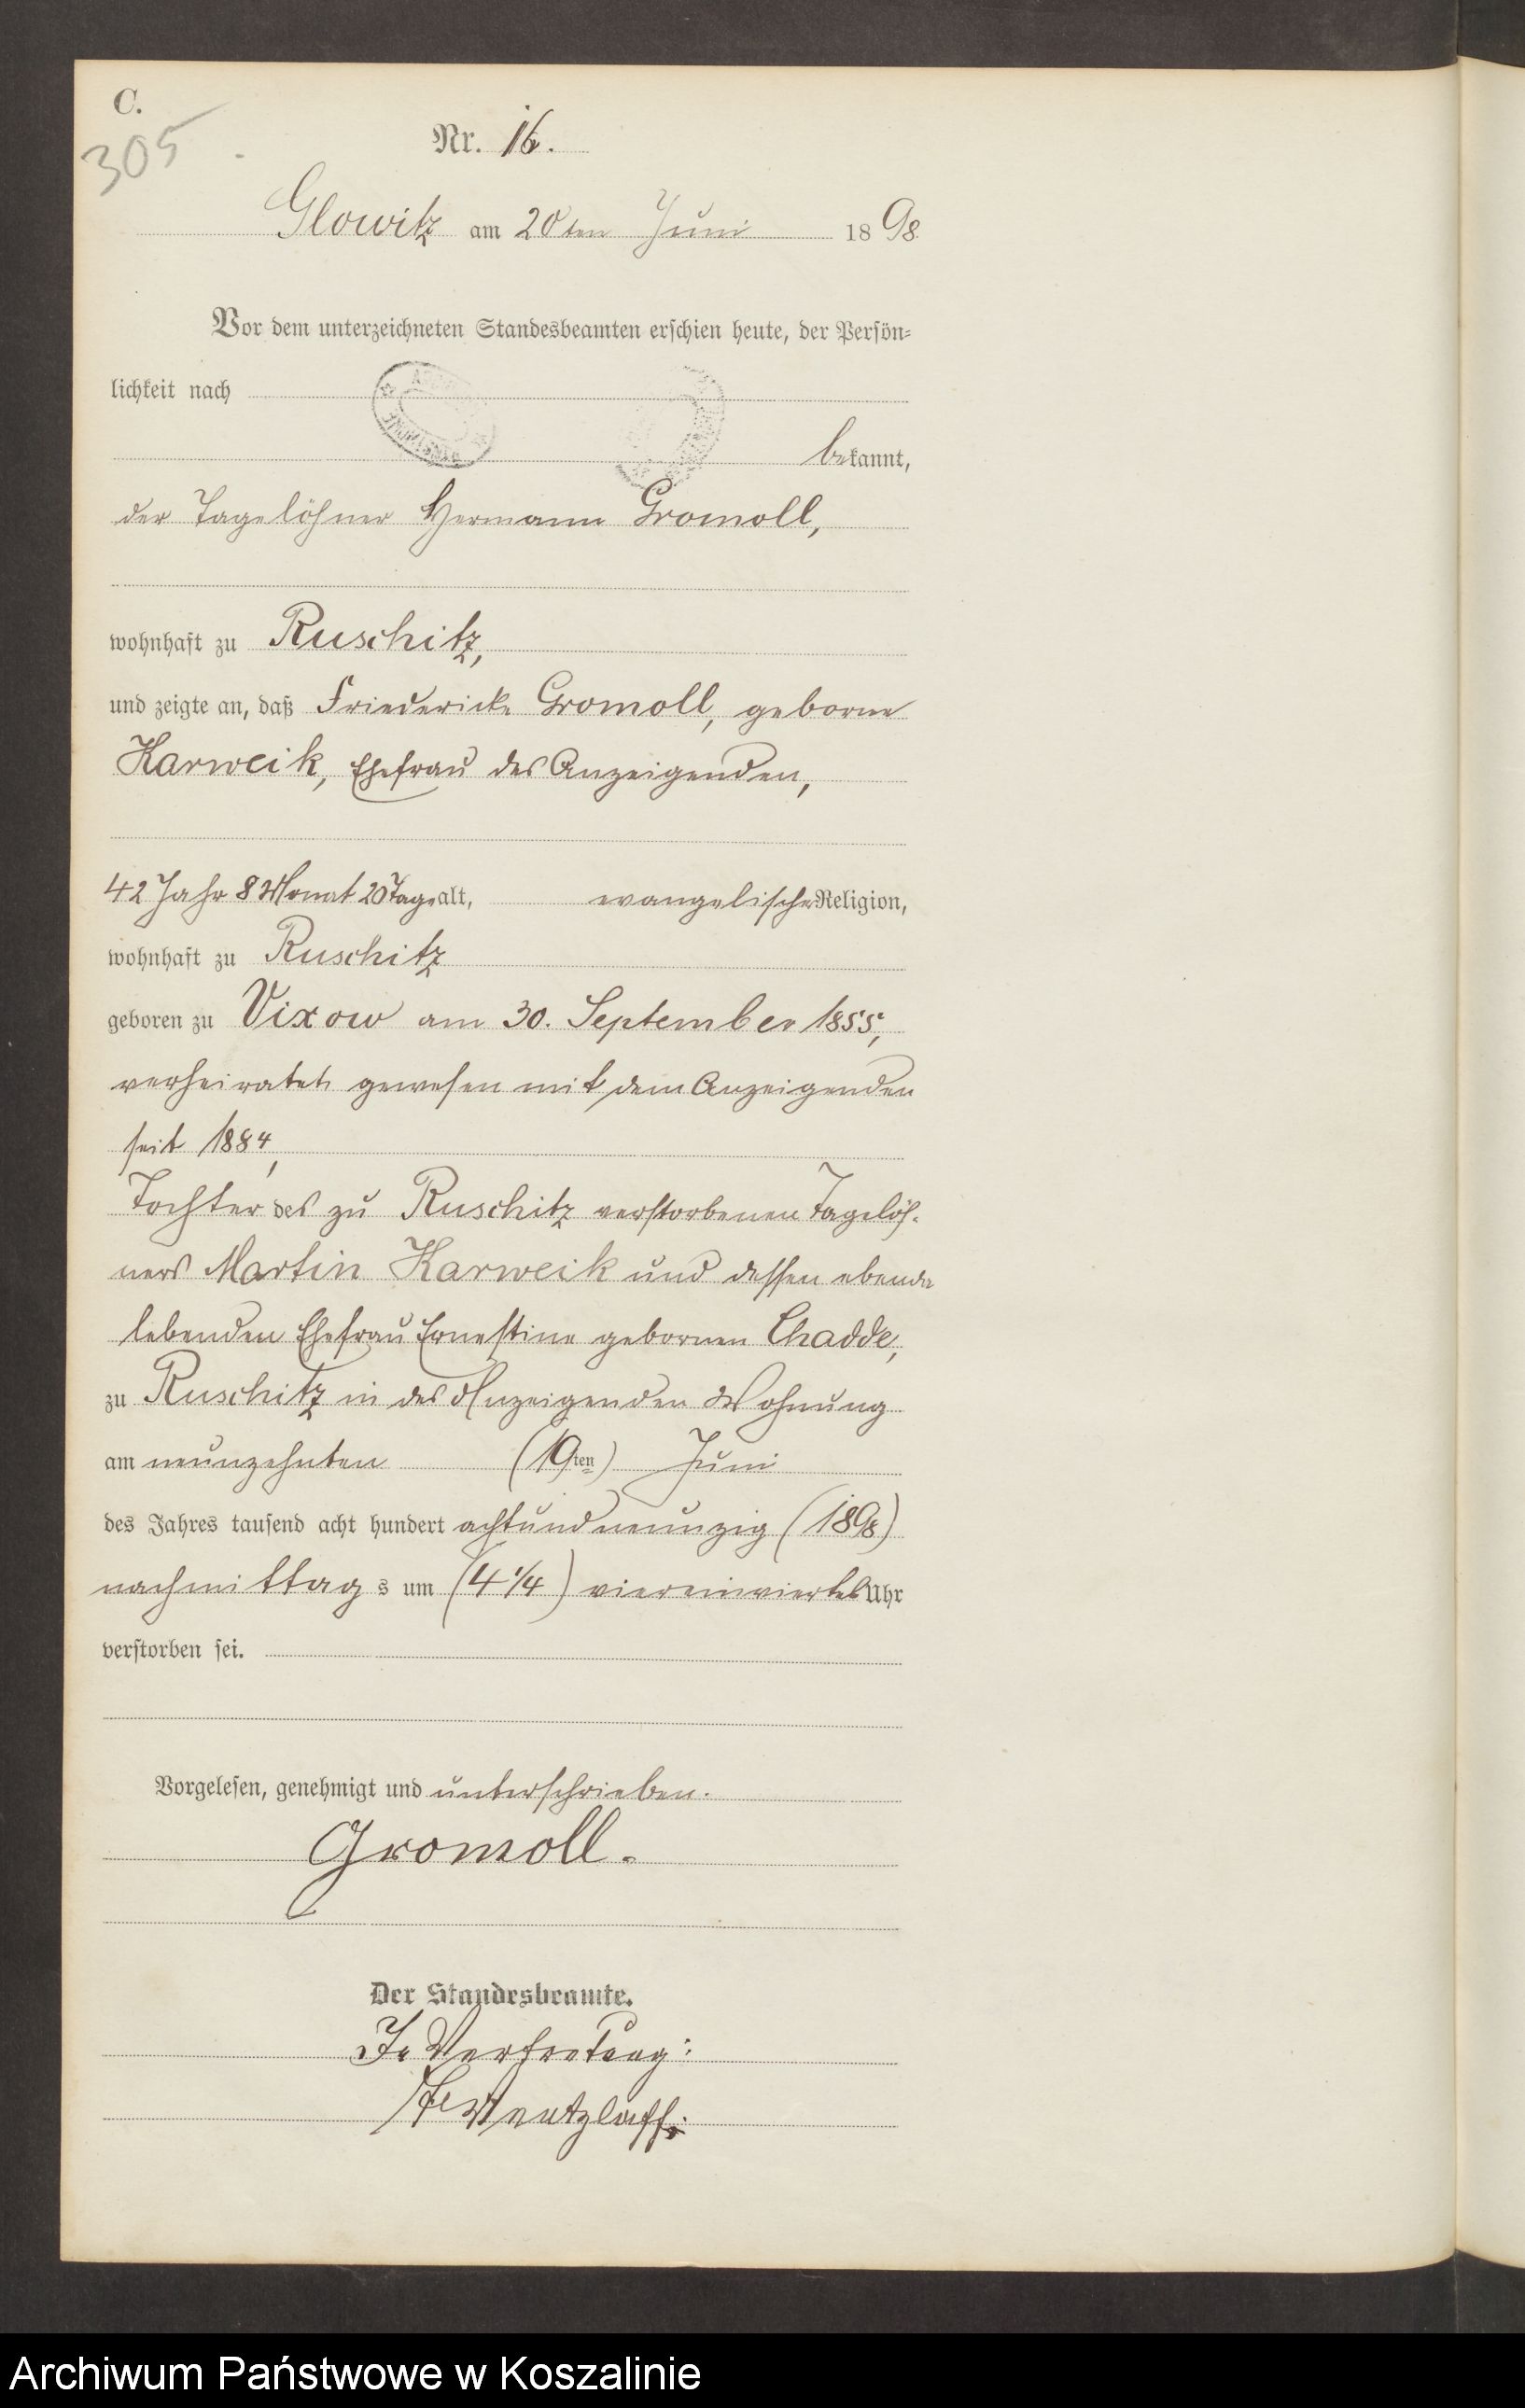 C.
305
Nr. 16.
Glowitz am 20ten Juni 1898
Vor dem unterzeichneten Standesbeamten erschien heute, der Persön-
lichkeit nach
bekannt,
der Tagelöhner Hermann Gromoll,
wohnhaft zu Ruschitz,
und zeigte an, daß Friedericke Gromoll, geborne
Karweik, Ehefrau des Anzeigenden,
42 Jahr 8 Monat 20 Tage alt, evangelischer Religion,
wohnhaft zu Ruschitz
geboren zu Vixow am 30. September 1855,
verheiratet gewesen mit dem Anzeigenden
seit 1884,
Tochter des zu Ruschitz verstorbenen Tagelöh-
ners Martin Karweik und dessen ebenda
lebenden Ehefrau Ernestine gebornen Chadde,
zu Ruschitz in des Anzeigenden Wohnung
am neunzehnten (19ten) Juni
des Jahres tausend acht hundert achtundneunzig (1898)
nachmittags um (4 1/4) viereinviertel Uhr
verstorben sei.
Vorgelesen, genehmigt und unterschrieben.
Gromoll.
Der Standesbeamte.
In Vertretung:
Wentzlaff.
Archiwum Państwowe w Koszalinie